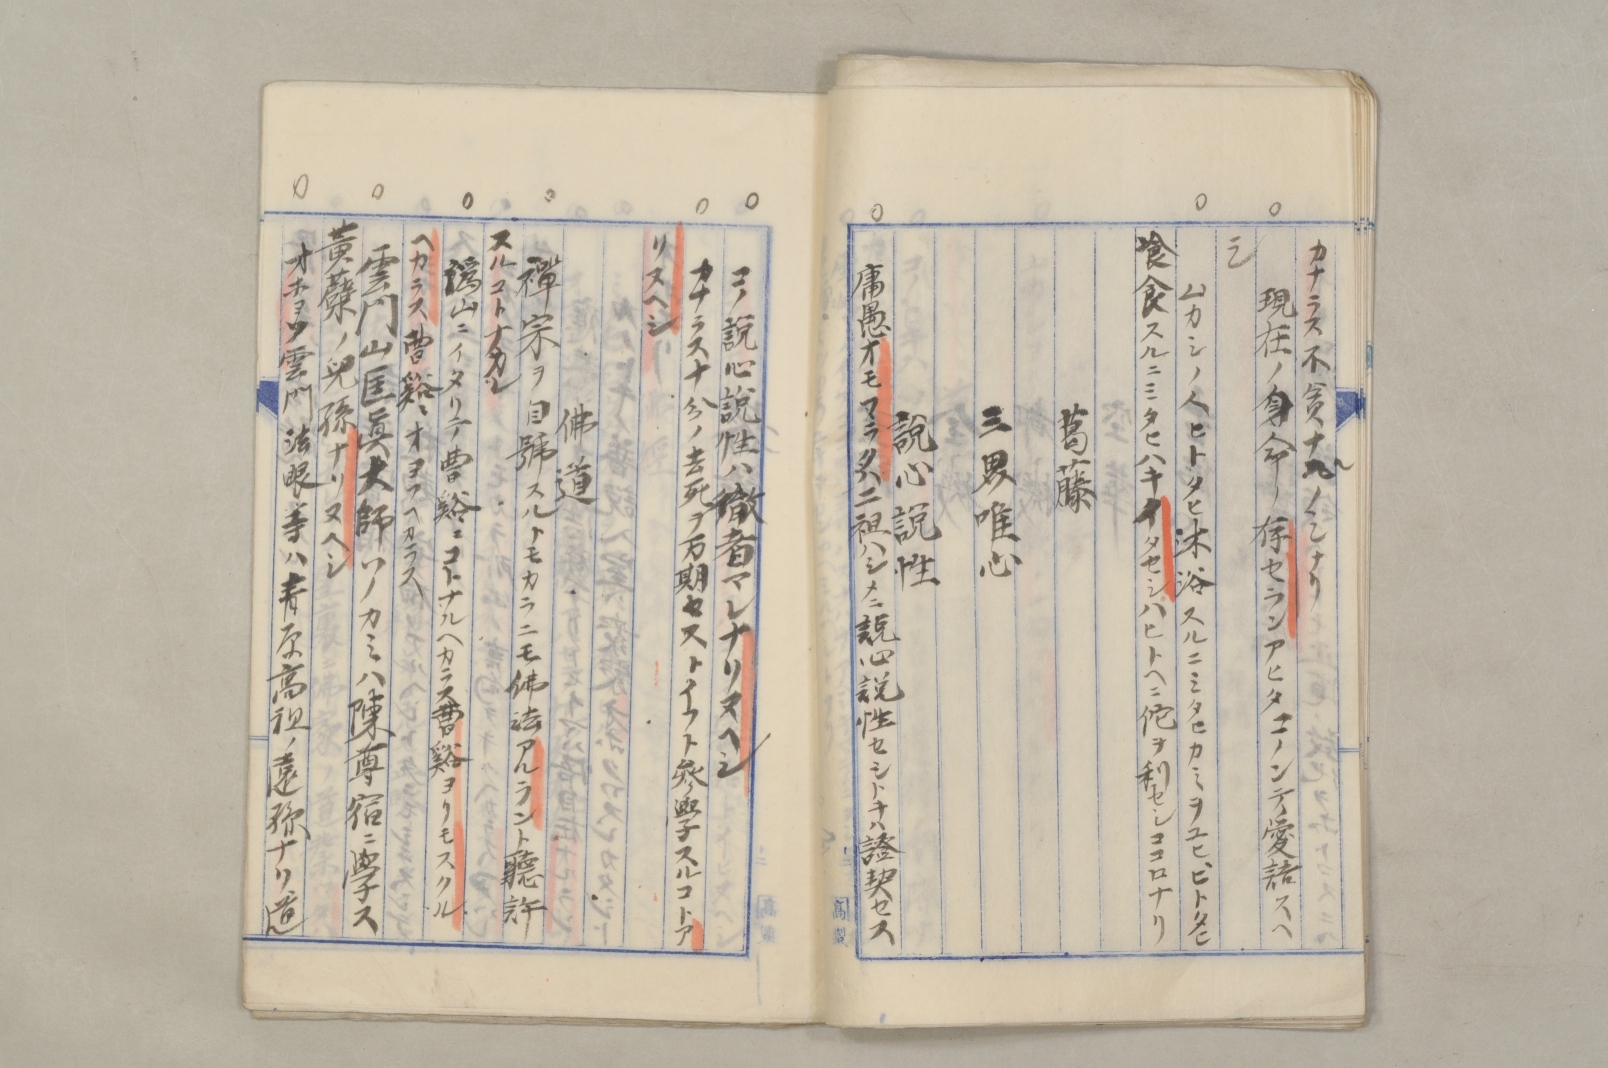 カナラス不貪ナルノミナリ
現在ノ身命ノ存セランアヒタコノンテ愛語スヘ
シ
ムカシノ人ヒトタヒ沐浴スルニミタヒカミヲユヒヒトタヒ
飡食スルニミタヒハキイタセシハヒトヘニ佗ヲ利セシココロナリ
葛藤
三界唯心
説心説性
庸愚オモマラクハ二祖ハシメニ説心説性セシトキハ證契セス
コノ説心説性ハ徹者マレナリヌヘシ
カナラスナ分ノ去死ヲ万期セストイフト叅學スルコトア
リヌヘシ
佛道
禪宗ヲ自號スルトモカラニモ佛法アルラント聽許
スルコトナカレ
潙山ニイタリテ曹谿ニコトナルヘカラス曹谿ヨリモスクル
ヘカラス曹谿ニオヨフヘカラス
雲門山匡眞大師ソノカミハ陳尊宿ニ學ス
黃蘗ノ兒孫ナリヌヘシ
オホヨソ雲門法眼等ハ青原高祖ノ遠孫ナリ道